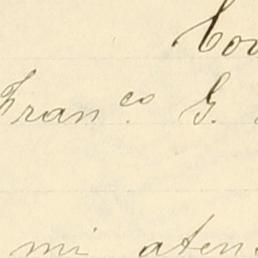 Fran.co G.
mi aten